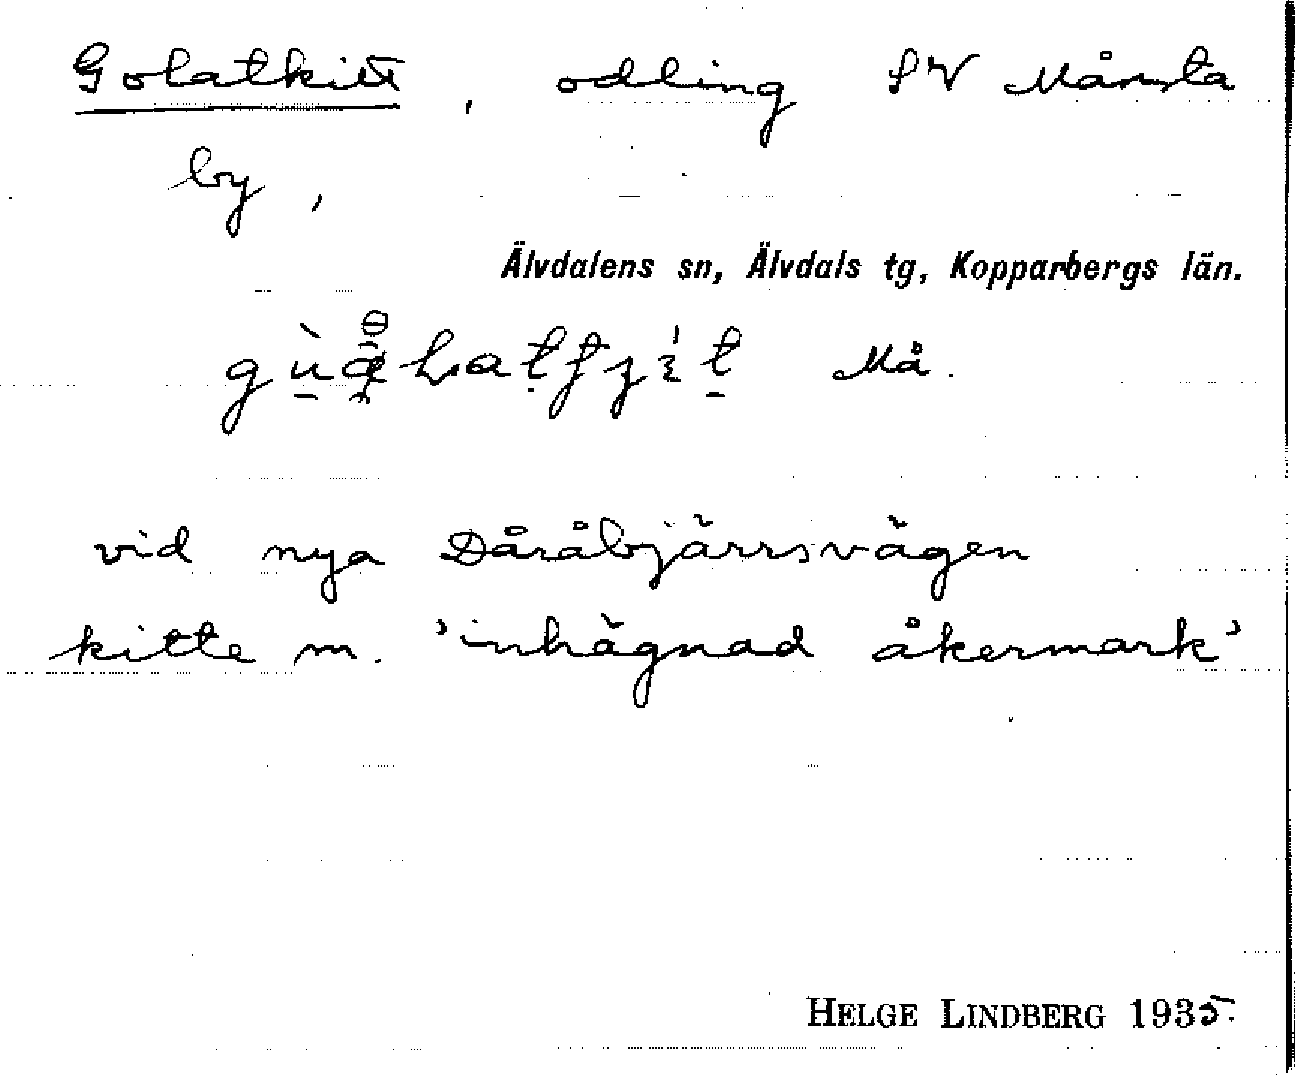 Golatkitt, odling SV Månsta
by,
Älvdalens sn, Älvdals tg, Kopparbergs län.
Må.
vid nya Dåråbjärrsvägen
kitte m. 'inhägnad åkermark'
HELGE LINDBERG 1935.